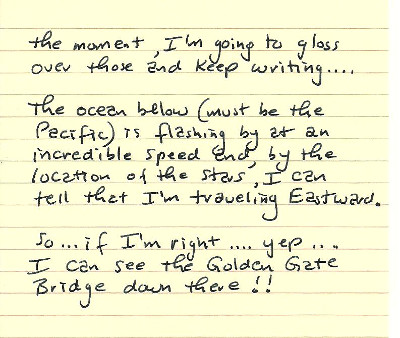 the moment, I'm going to gloss
over those and keep writing....
The ocean below (must be the
Pacific) is flashing by at an
incredible speed and, by the
location of the stars, I can
tell that I'm traveling Eastward.
So... if I'm right .... yep ...
I can see the Golden Gate
Bridge down there !!